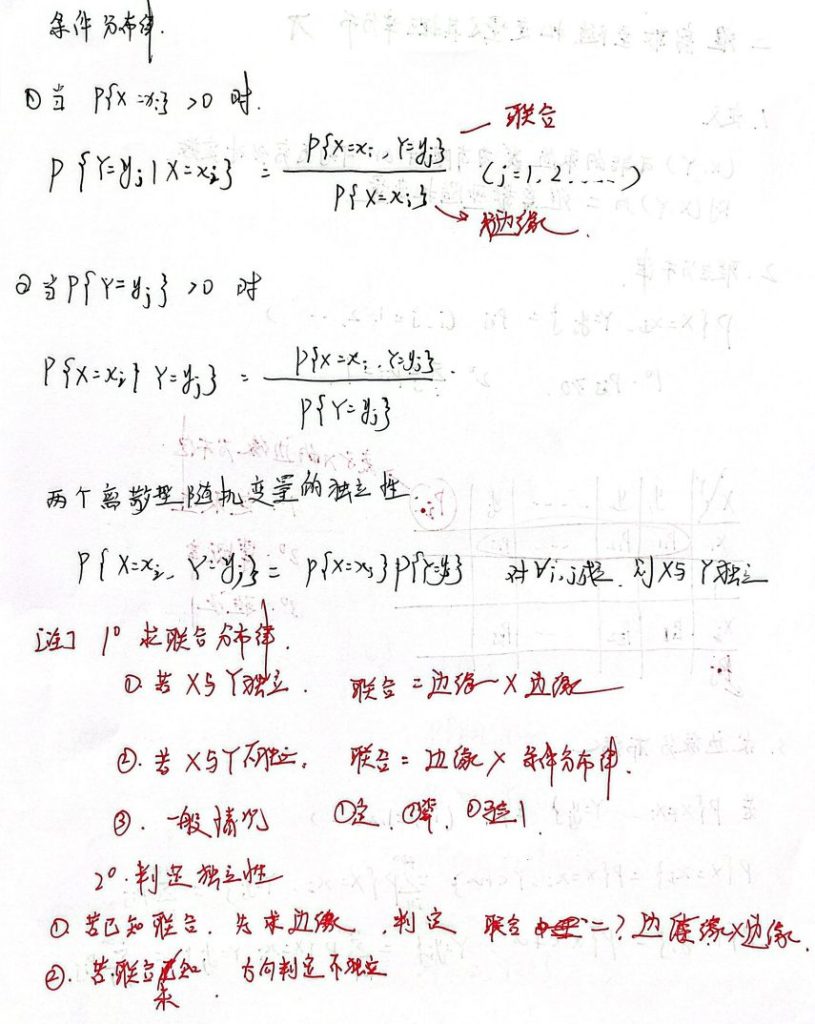 条件分布律.
① 当 P{X=xi} >0 时.
联合
P{Y=yj | X=xi} = P{X=xi, Y=yj} / P{X=xi} (j=1,2,....)
边缘.
② 当P{Y=yj} >0 时
P{X=xi | Y=yj} = P{X=xi, Y=yj} / P{Y=yj}.
两个离散型随机变量的独立性.
P{X=xi, Y=yj} = P{X=xi}P{Y=yj} 对∀i,j成立, 则X与Y独立
[注] 1° 求联合分布律.
① 若X与Y独立. 联合=边缘×边缘
②. 若X与Y不独立. 联合=边缘×条件分布律.
③. 一般情况 ①定, ②算, ③验1.
2°. 判定独立性
① 若已知联合, 先求边缘, 判定 联合 =? 边缘×边缘.
②. 若联合未知, 方向判定不独立